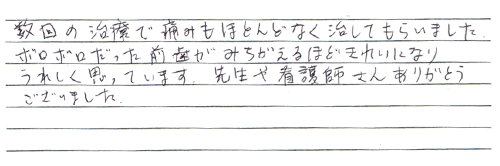 数回の治療で痛みもほとんどなく治してもらいました.
ボロボロだった前歯がみちがえるほどきれいになり
うれしく思っています. 先生や看護師さんありがとう
ございました.